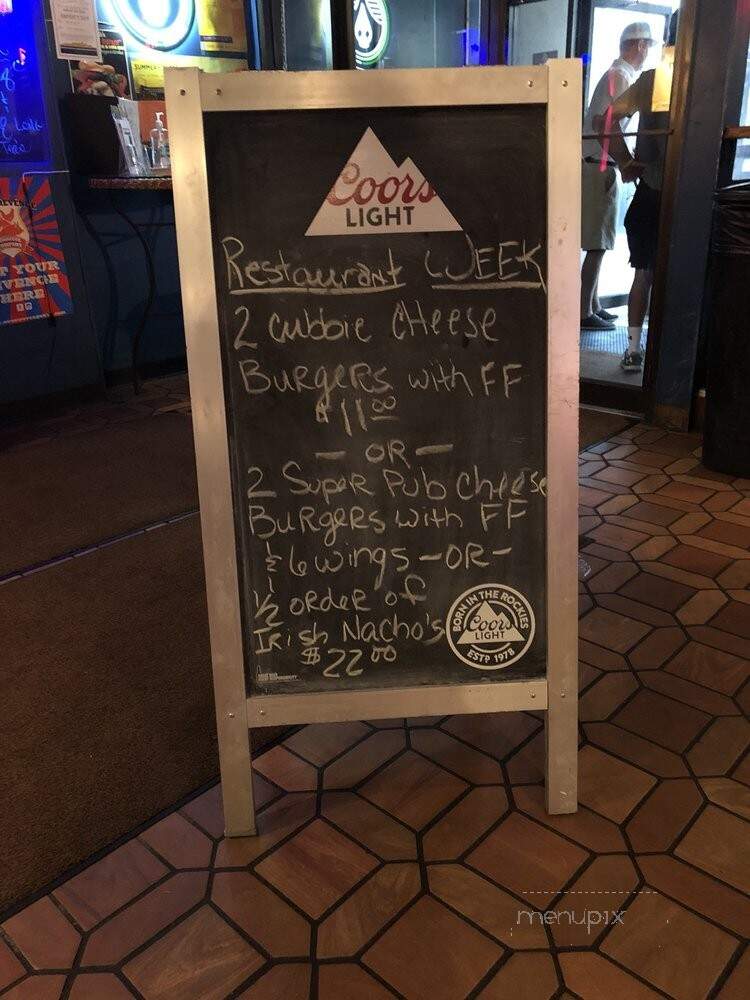 Coors
LIGHT
Restaurant WEEK
2 cubbie CHeese
BuRgeRs with FF
$11.00
- OR -
2 SupeR Pub cheese
BuRgeRs with FF
& 6 wings -OR-
1/2 oRdeR of
IRish Nacho's
$22.00
BORN IN THE ROCKIES
Coors
LIGHT
ESTD 1978
T YOUR
VENGE
HERE
menupix